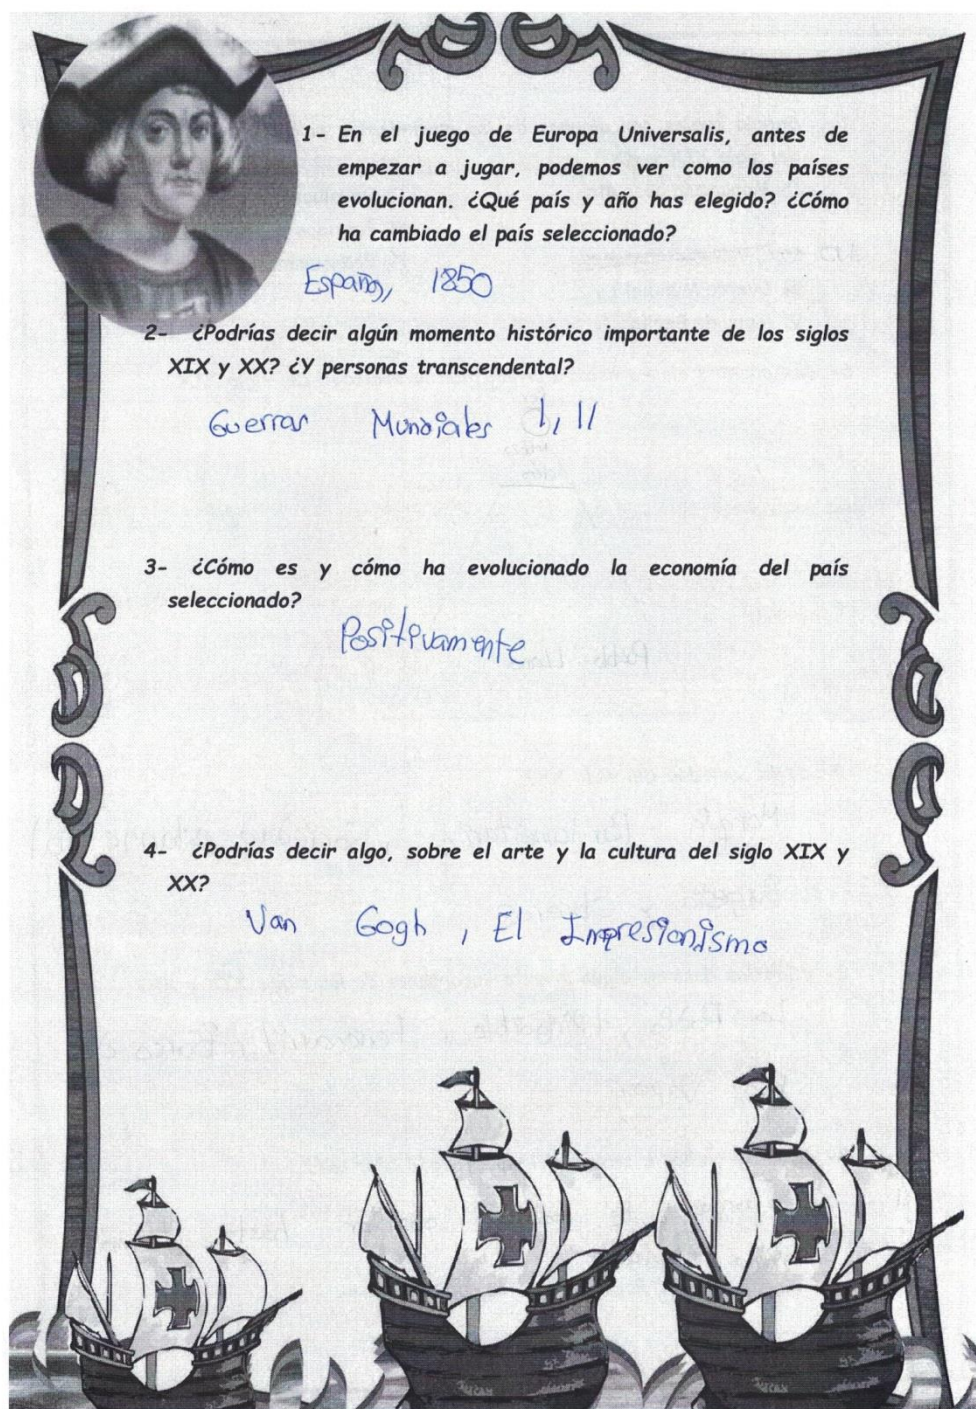 1- En el juego de Europa Universalis, antes de
empezar a jugar, podemos ver como los países
evolucionan. ¿Qué país y año has elegido? ¿Cómo
ha cambiado el país seleccionado?
España, 1850
2- ¿Podrías decir algún momento histórico importante de los siglos
XIX y XX? ¿Y personas transcendental?
Guerras Mundiales I, II
3- ¿Cómo es y cómo ha evolucionado la economía del país
seleccionado?
Positivamente
4- ¿Podrías decir algo, sobre el arte y la cultura del siglo XIX y
XX?
Van Gogh, El Impresionismo